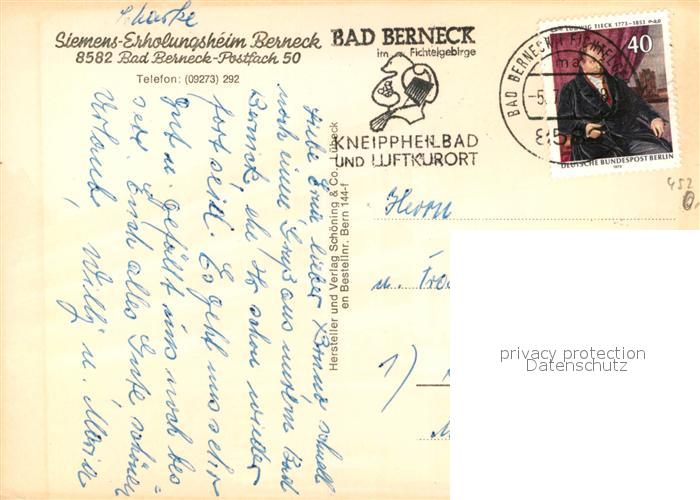 Siemens-Erholungsheim Berneck
8582 Bad Berneck-Postfach 50
Telefon: (09273) 292
BAD BERNECK
im Fichtelgebirge
KNEIPPHEILBAD
UND LUFTKURORT
BAD BERNECK I FICHTELG
-5.7
LUDWIG TIECK 1773-1853
40
DEUTSCHE BUNDESPOST BERLIN
1973
452
Liebe Erna lieber schnell
noch einen Gruß aus unserem Bad
Berneck, ehe Ihr schon wieder
fort seid. Es geht uns sehr
gut u. gefällt uns noch bes=
ser. Euch alles Gute schönen
Urlaub, Willy u. Maria
Hersteller und Verlag Schöning & Co., Lübeck
en Bestellnr. Bern 144-f
Herrn
u.
1)
privacy protection
Datenschutz